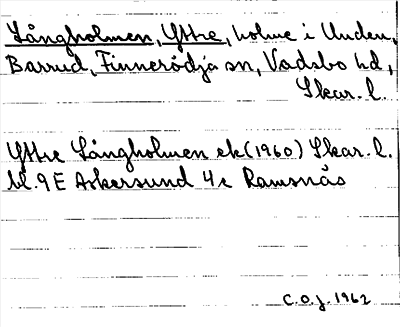 Långholmen, Yttre, holme i Unden,
Barrud, Finnerödja sn, Vadsbo hd,
Skar. l.
Yttre Långholmen ek (1960) Skar. l.
bl. 9E Askersund 4e Ramsnäs
C.O.J. 1962